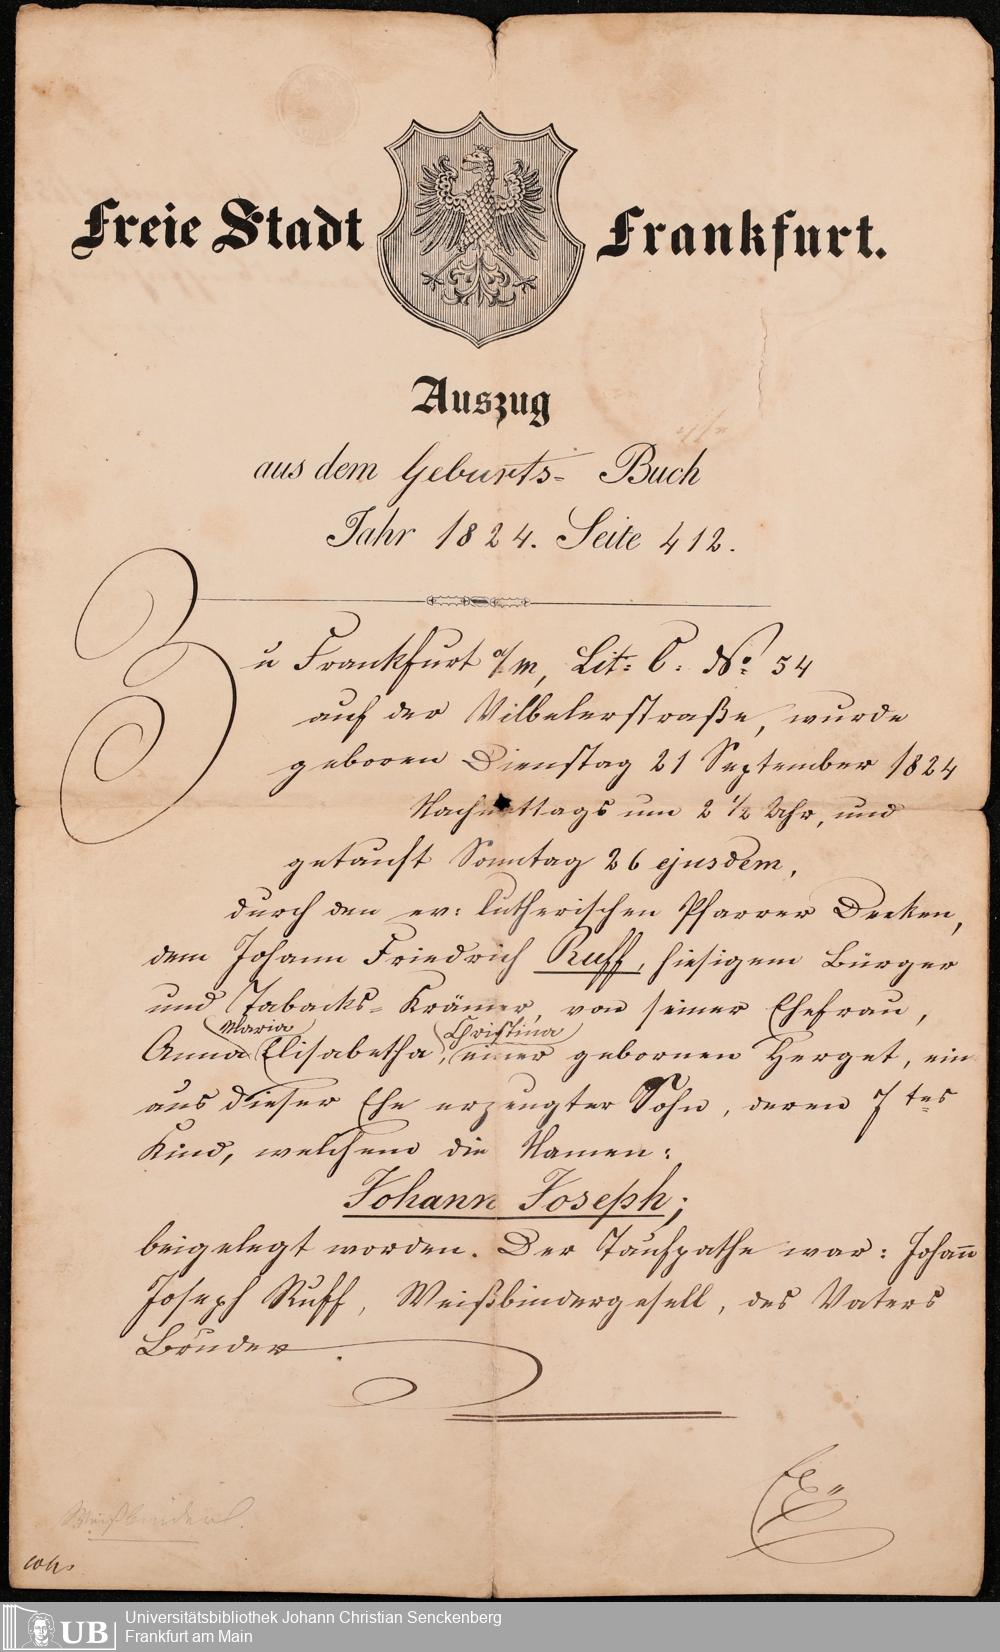 Freie Stadt Frankfurt.
Auszug
aus dem Geburts- Buch
Jahr 1824. Seite 412.
Zu Frankfurt a/m, Lit: C. No. 54
auf der Vilbelerstraße, wurde
geboren Dienstag 21 September 1824
Nachmittags um 2 1/2 Uhr, und
getauft Sonntag 26 ejusdem,
durch den ev: lutherischen Pfarrer Decken,
dem Johann Friedrich Ruff, hiesigem Bürger
und Tabacks- Krämer, von seiner Ehefrau,
Maria Christina
Anna Elisabetha, einer gebornen Herget, ein
aus dieser Ehe erzeugter Sohn, deren 7tes
Kind, welchem die Namen:
Johann Joseph;
beigelegt worden. Der Taufpathe war: Johann
Joseph Ruff, Weißbindergesell, des Vaters
Bruder.
Weißbinder
UB
Universitätsbibliothek Johann Christian Senckenberg
Frankfurt am Main